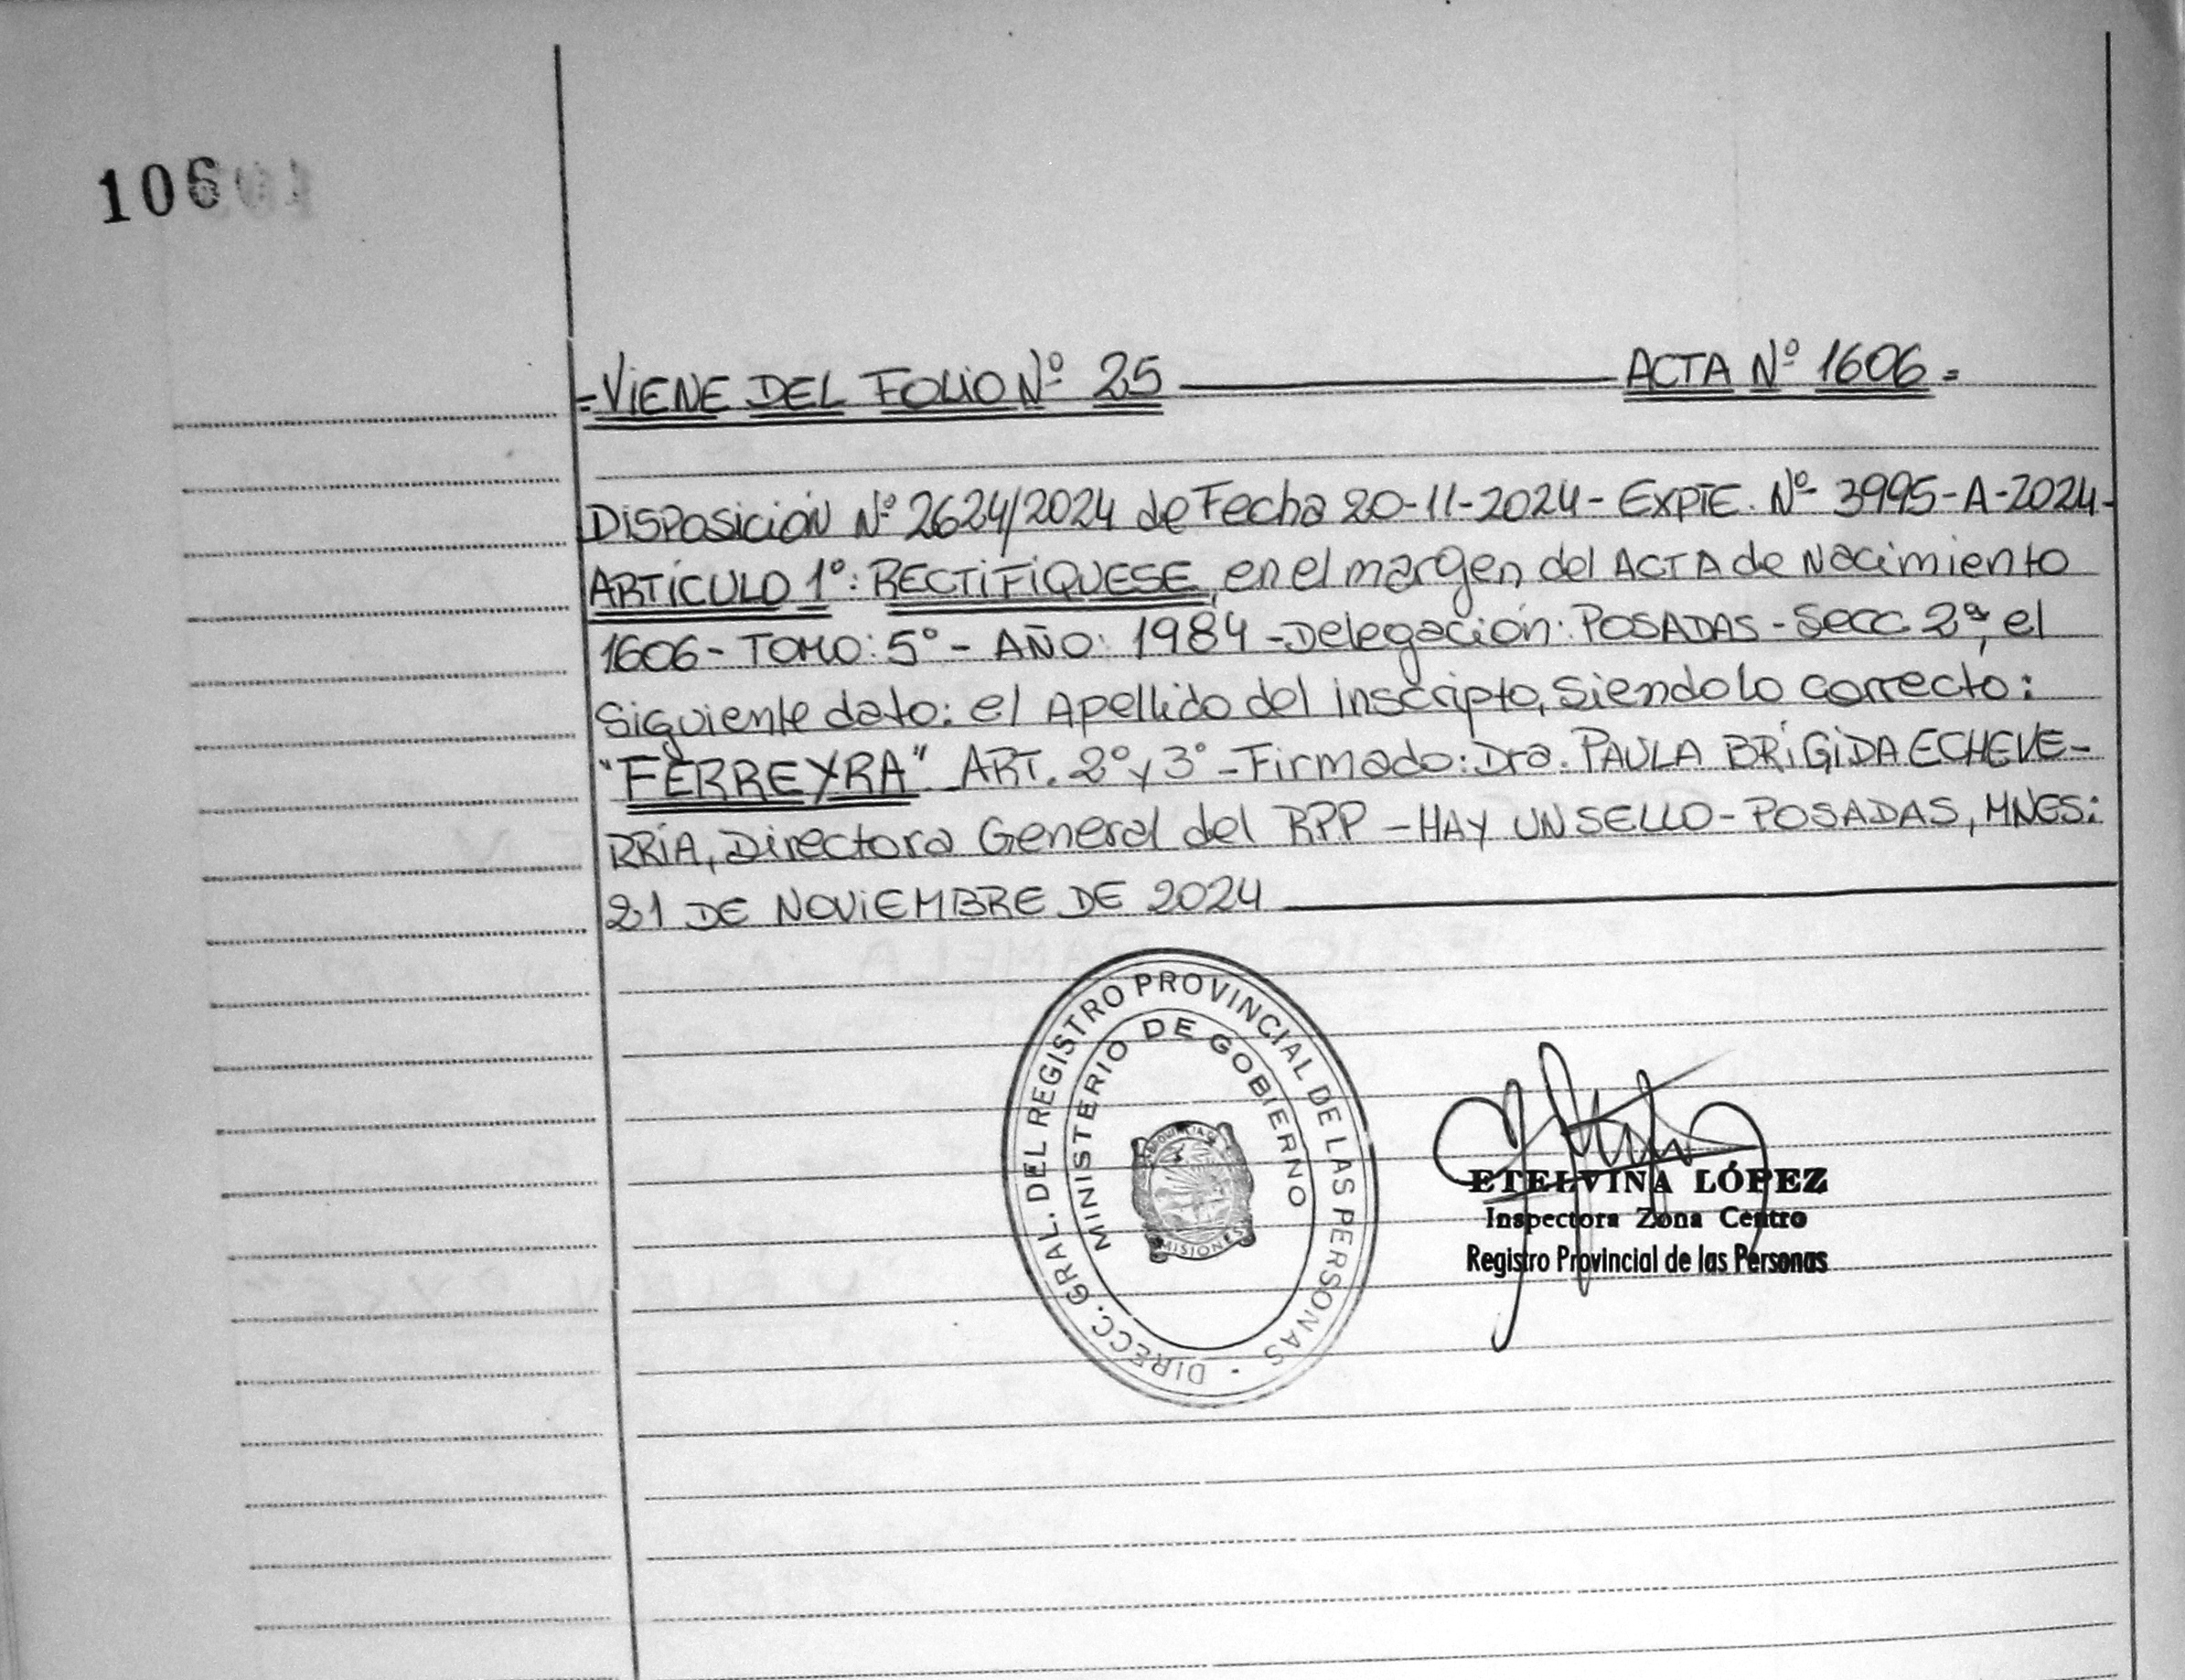 106
=VIENE DEL FOLIO Nº 25 ——— ACTA Nº 1606=
DISPOSICIÓN Nº 2624/2024 de Fecha 20-11-2024- EXPTE. Nº 3995-A-2024-
ARTÍCULO 1º: RECTIFÍQUESE, en el margen del ACTA de Nacimiento
1606- TOMO: 5º - AÑO: 1984 -Delegación: POSADAS - Secc 2ª, el
Siguiente dato: el Apellido del inscripto, Siendo lo correcto:
"FERREYRA" ART. 2º y 3º -Firmado: Dra. PAULA BRÍGIDA ECHEVE-
RRÍA, Directora General del RPP - HAY UN SELLO - POSADAS, MNES:
21 DE NOVIEMBRE DE 2024
DIRECC. GRAL. DEL REGISTRO PROVINCIAL DE LAS PERSONAS
MINISTERIO DE GOBIERNO
PROVINCIA
MISIONES
ETELVINA LÓPEZ
Inspectora Zona Centro
Registro Provincial de las Personas